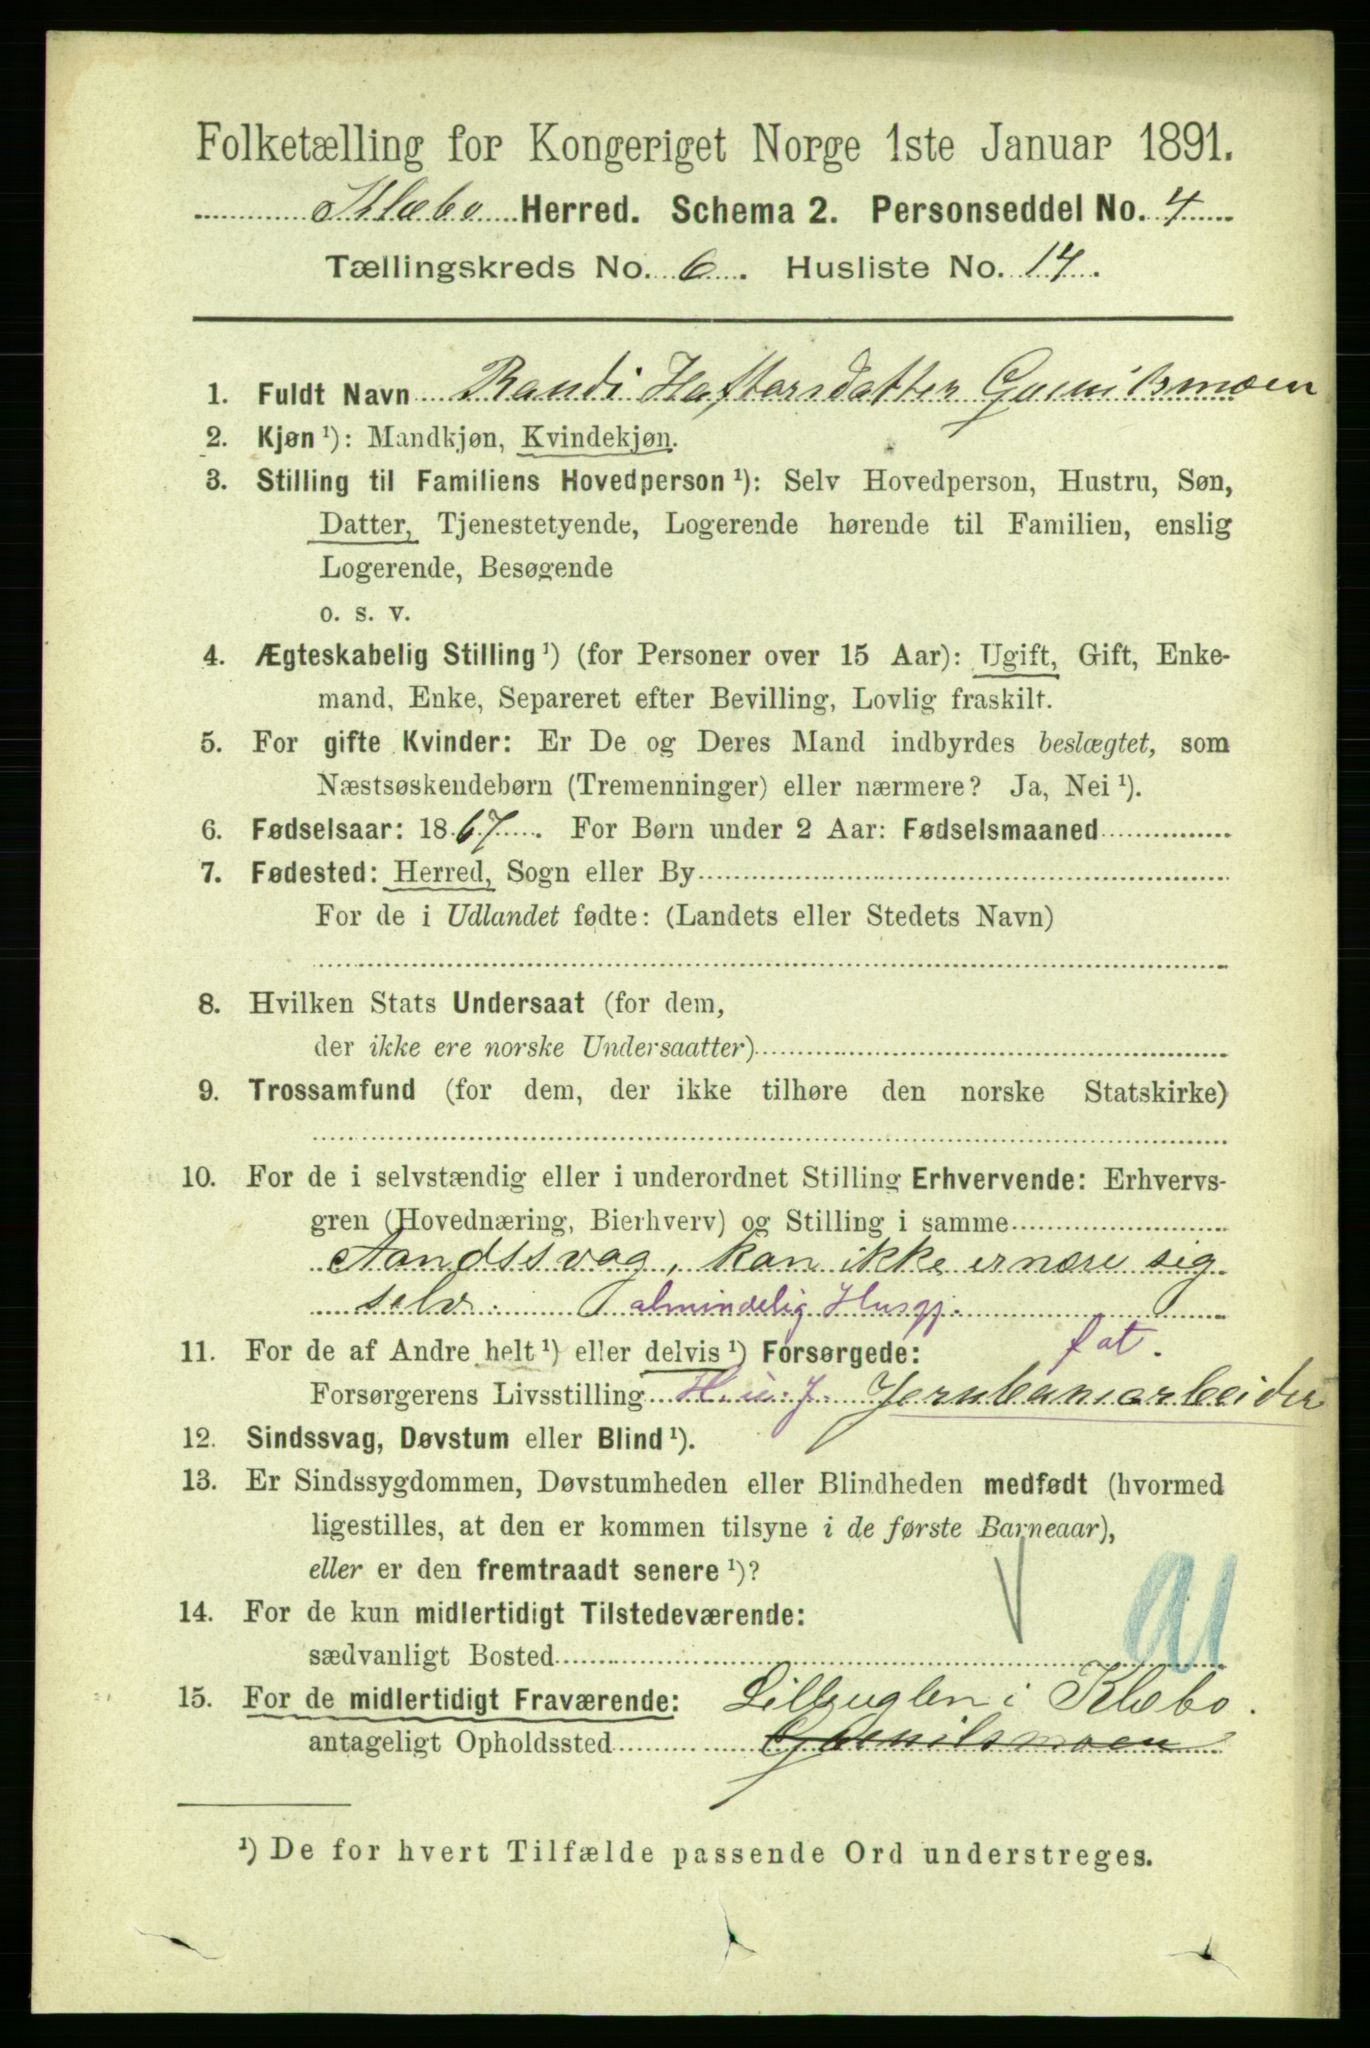 Folketælling for Kongeriget Norge 1ste Januar 1891.
Klæbo Herred. Schema 2. Personseddel No. 4
Tællingskreds No. 6. Husliste No. 14.
1. Fuldt Navn Randi Haftorsdatter Guenilsmoen
2. Kjøn ¹): Mandkjøn, Kvindekjøn.
3. Stilling til Familiens Hovedperson ¹): Selv Hovedperson, Hustru, Søn,
Datter, Tjenestetyende, Logerende hørende til Familien, enslig
Logerende, Besøgende
o. s. v.
4. Ægteskabelig Stilling ¹) (for Personer over 15 Aar): Ugift, Gift, Enke-
mand, Enke, Separeret efter Bevilling, Lovlig fraskilt.
5. For gifte Kvinder: Er De og Deres Mand indbyrdes beslægtet, som
Næstsøskendebørn (Tremenninger) eller nærmere? Ja, Nei ¹).
6. Fødselsaar: 1867. For Børn under 2 Aar: Fødselsmaaned
7. Fødested: Herred, Sogn eller By
For de i Udlandet fødte: (Landets eller Stedets Navn)
8. Hvilken Stats Undersaat (for dem,
der ikke ere norske Undersaatter)
9. Trossamfund (for dem, der ikke tilhøre den norske Statskirke)
10. For de i selvstændig eller i underordnet Stilling Erhvervende: Erhvervs-
gren (Hovednæring, Bierhverv) og Stilling i samme
Aandssvag, kan ikke ernære sig
selv. almindelig Husgj.
11. For de af Andre helt ¹) eller delvis ¹) Forsørgede: fat.
Forsørgerens Livsstilling Jernbanearbeider
12. Sindssvag, Døvstum eller Blind ¹).
13. Er Sindssygdommen, Døvstumheden eller Blindheden medfødt (hvormed
ligestilles, at den er kommen tilsyne i de første Barneaar),
eller er den fremtraadt senere ¹)?
14. For de kun midlertidigt Tilstedeværende:
sædvanligt Bosted
15. For de midlertidigt Fraværende: Lilleuglen i Klæbo.
antageligt Opholdssted Guenilsmoen
¹) De for hvert Tilfælde passende Ord understreges.